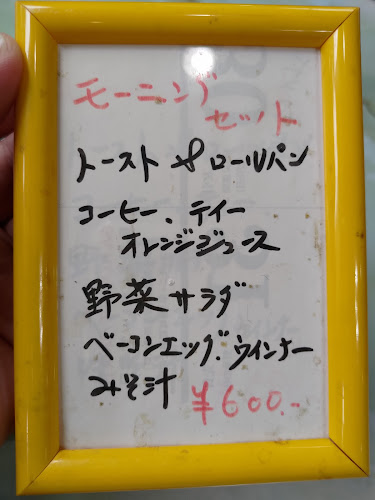 モーニング
セット
トースト & ロールパン
コーヒー、ティー
オレンジジュース
野菜サラダ
ベーコンエッグ、ウインナー
みそ汁
¥600.-